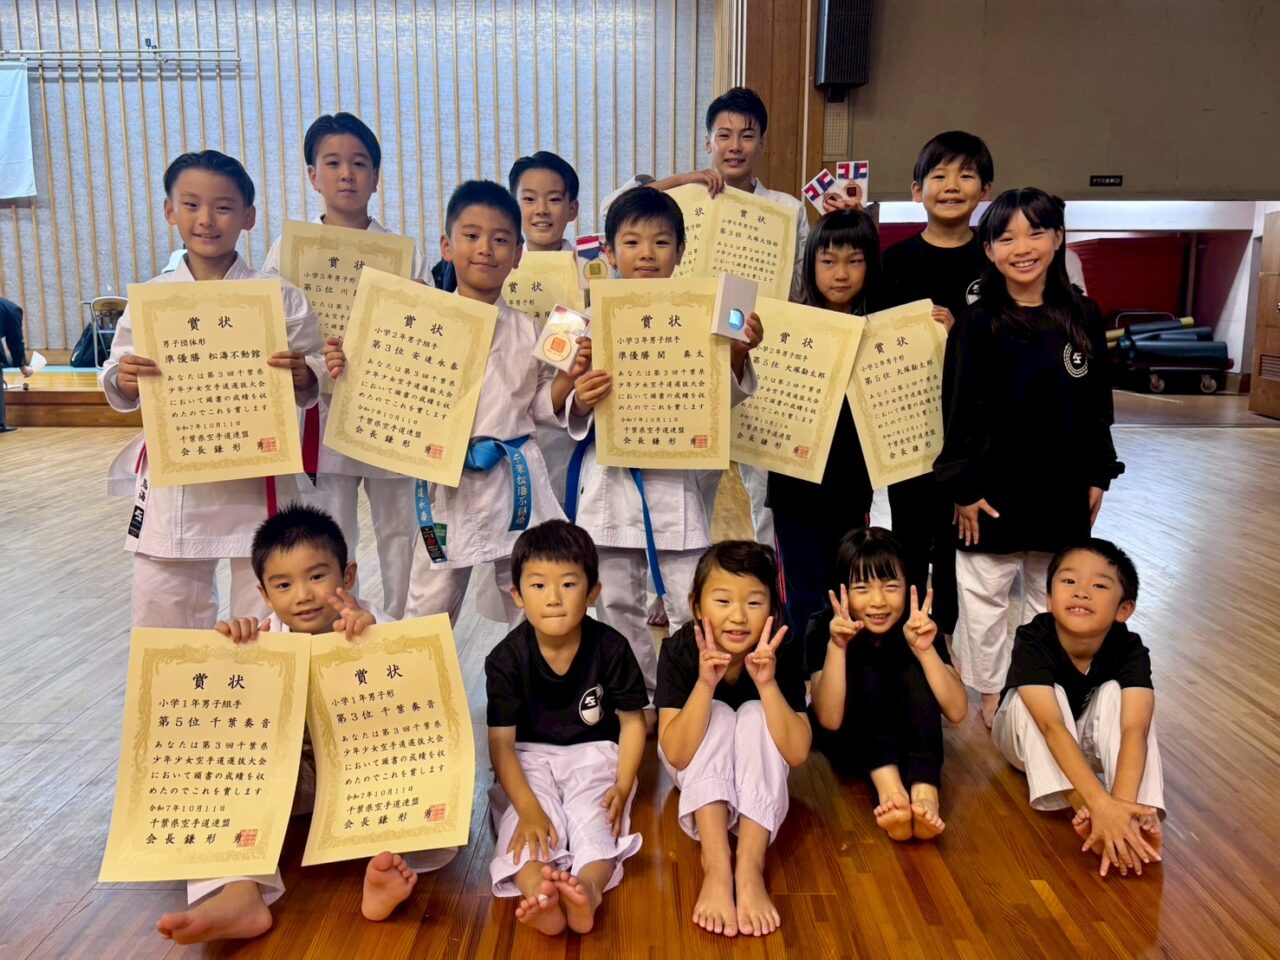 賞状
男子団体形
準優勝 松海不動館
あなたは第3回千葉県
少年少女空手道選抜大会
において頭書の成績を収
めたのでこれを賞します
令和7年10月11日
千葉県空手道連盟
会長 鎌形 勇
賞状
小学5年男子形
第5位 川
あなたは第3
賞状
小学2年男子組手
第3位 安達永泰
あなたは第3回千葉県
少年少女空手道選抜大会
において頭書の成績を収
めたのでこれを賞します
令和7年10月11日
千葉県空手道連盟
会長 鎌形 勇
賞状
年男子形
賞状
小学3年男子組手
準優勝 関 奏太
あなたは第3回千葉県
少年少女空手道選抜大会
において頭書の成績を収
めたのでこれを賞します
令和7年10月11日
千葉県空手道連盟
会長 鎌形 勇
状
男子組手
賞状
小学6年男子形
第3位 大塚大悟郎
あなたは第3回千葉県
少年少女空手道選抜大会
において頭書の成績を収
めたのでこれを賞します
賞状
小学2年男子組手
第5位 大塚勘太郎
あなたは第3回千葉県
少年少女空手道選抜大会
において頭書の成績を収
めたのでこれを賞します
令和7年10月11日
千葉県空手道連盟
会長 鎌形 勇
賞状
小学2年男子形
第5位 大塚勘太郎
あなたは第3回千葉県
少年少女空手道選抜大会
において頭書の成績を収
めたのでこれを賞します
令和7年10月11日
千葉県空手道連盟
会長 鎌形
千葉松海不動館
安達永泰
賞状
小学1年男子組手
第5位 千葉奏音
あなたは第3回千葉県
少年少女空手道選抜大会
において頭書の成績を収
めたのでこれを賞します
令和7年10月11日
千葉県空手道連盟
会長 鎌形 勇
賞状
小学1年男子形
第3位 千葉奏音
あなたは第3回千葉県
少年少女空手道選抜大会
において頭書の成績を収
めたのでこれを賞します
令和7年10月11日
千葉県空手道連盟
会長 鎌形 勇